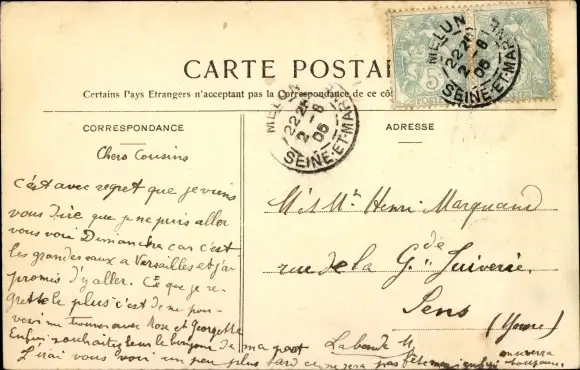 CARTE POSTA
Certains Pays Etrangers n'acceptant pas la Correspondance de ce côt
CORRESPONDANCE
ADRESSE
MELUN
22 25
2 - 8
05
SEINE-ET-MAR
MELUN
22 25
2 - 8
05
SEINE-ET-MARNE
5
POSTES
Chers Cousins
C'est avec regret que je viens
vous dire que je ne puis aller
vous voir Dimanche car c'est
les grandes eaux a Versailles et j'ai
promis d'y aller. Ce que je re-
grette le plus c'est de ne pou-
voir me trouver avec Rose et Georgette
Enfin souhaitez leur le bonjour de ma part
J'irai vous voir un peu plus tard
pas
Mr et Mme Henri Marquand
rue de la Gde Juiverie
Sens
(Yonne)